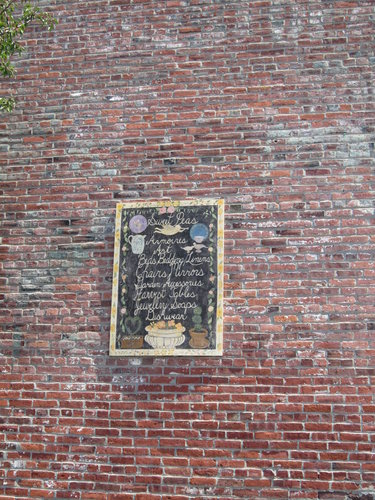 Sweet Peas
Armoires
Art
Beds, Bedding, Linens
Chairs, Mirrors
Garden Accessories
Harvest Tables
Jewelry, Soaps
Dishware